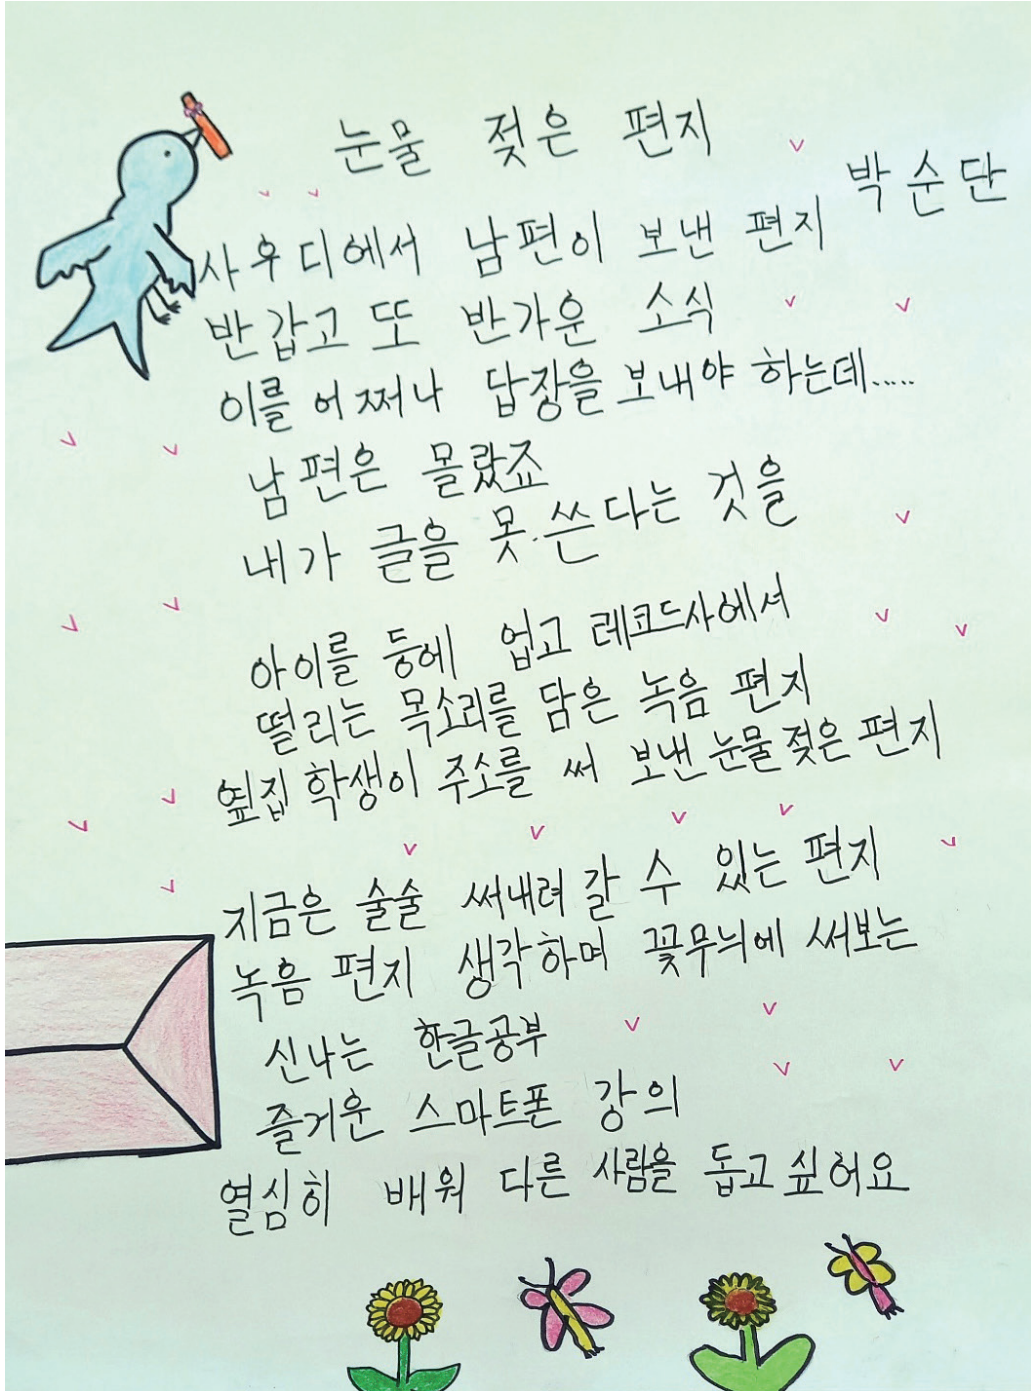 눈물 젖은 편지
박순단
사우디에서 남편이 보낸 편지
반갑고 또 반가운 소식
이를 어쩌나 답장을 보내야 하는데.....
남편은 몰랐죠
내가 글을 못.쓴다는 것을
아이를 등에 업고 레코드사에서
떨리는 목소리를 담은 녹음 편지
옆집 학생이 주소를 써 보낸 눈물 젖은 편지
지금은 술술 써내려 갈 수 있는 편지
녹음 편지 생각하며 꽃무늬에 써보는
신나는 한글공부
즐거운 스마트폰 강의
열심히 배워 다른 사람을 돕고 싶어요